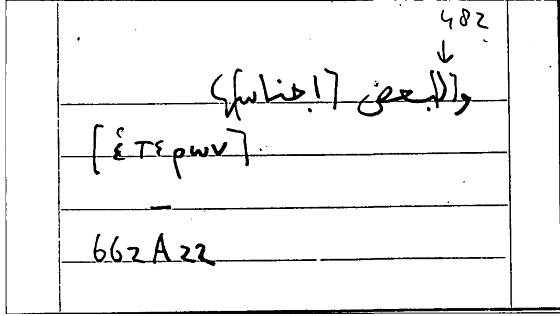 482
↓
والبعض [اجناسها]
[ἑτερων]
—
662A22